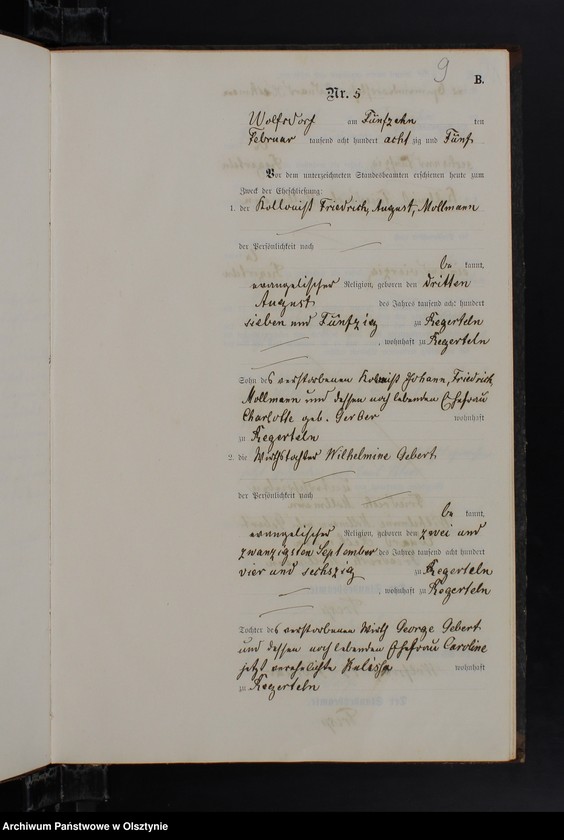 9
B.
Nr. 5
Wolfsdorf am Fünfzehn ten
Februar tausend acht hundert acht zig und Fünf
Vor dem unterzeichneten Standesbeamten erschienen heute zum
Zweck der Eheschließung:
1. der Kollonist Friedrich, August, Mollmann
der Persönlichkeit nach
be kannt,
evangelischer Religion, geboren den dritten
August des Jahres tausend acht hundert
sieben und Fünfzig zu Regerteln
, wohnhaft zu Regerteln
Sohn des verstorbenen Johann, Friedrich
Mollmann und dessen noch lebenden Ehefrau
Charlotte geb. Gerber wohnhaft
zu Regerteln
2. die Wirthstochter Wilhelmine Gebert
der Persönlichkeit nach
be kannt,
evangelischer Religion, geboren den zwei und
zwanzigsten September des Jahres tausend acht hundert
vier und sechszig zu Regerteln
, wohnhaft zu Regerteln
Tochter des verstorbenen Wirth George Gebert
und dessen noch lebenden Ehefrau Caroline
jetzt verehelichte wohnhaft
zu Regerteln
Archiwum Państwowe w Olsztynie